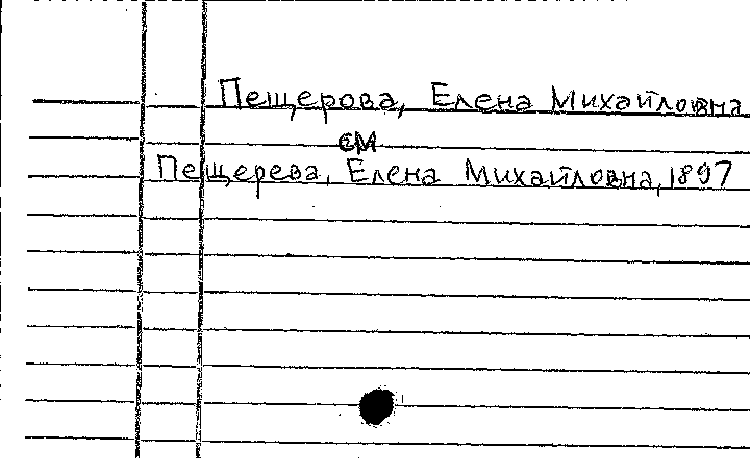 Пещерова, Елена Михайловна
см
Пещерева, Елена Михайловна, 1897